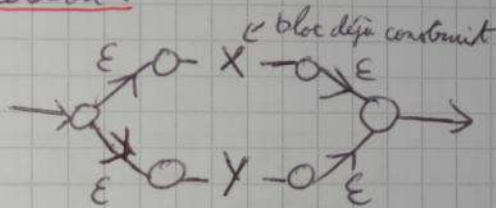 bloc déjà construit
ε X ε
ε Y ε